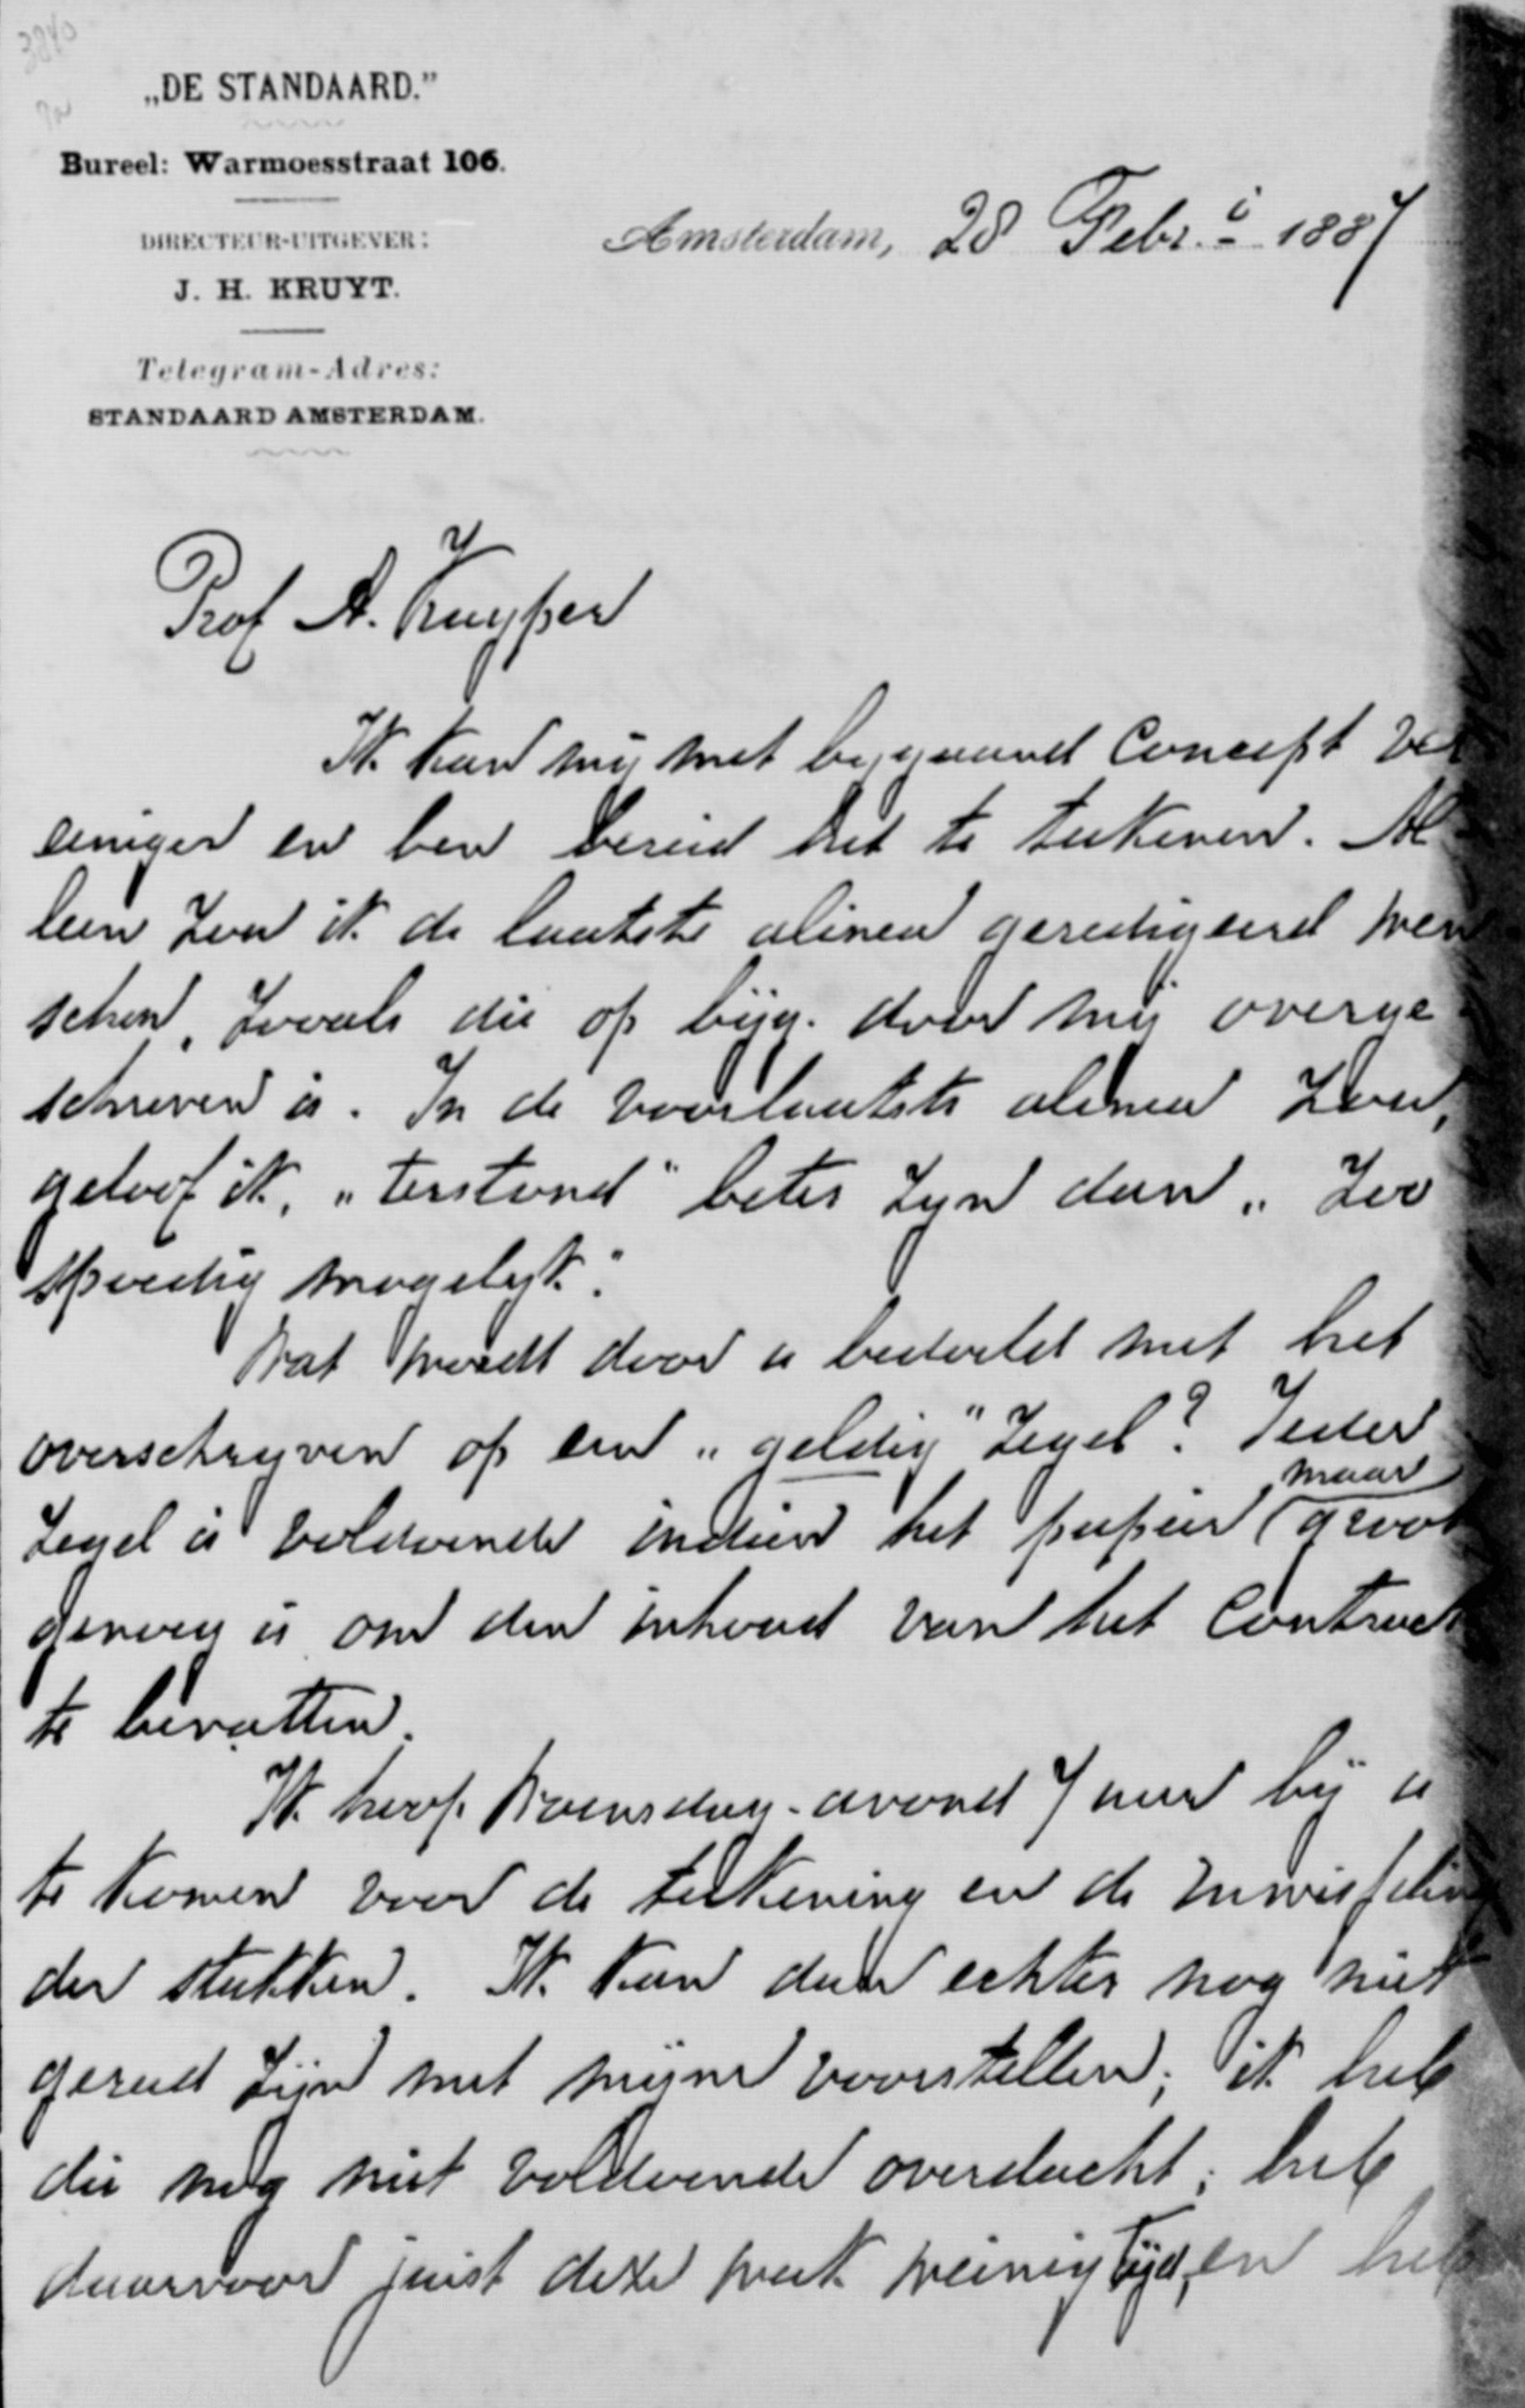 3840
„DE STANDAARD.”
Bureel: Warmoesstraat 106.
DIRECTEUR-UITGEVER:
J. H. KRUYT.
Telegram-Adres:
STANDAARD AMSTERDAM.
Amsterdam, 28 Febr.i 1887
Prof A. Kuyper
Ik kan mij met bijgaand Concept ver
eenigen en ben bereid het te teekenen. Al-
leen zou ik de laatste alinea geredigeerd wen
schen, zooals die op bijg. door mij overge-
schreven is. In de voorlaatste alinea zou,
geloof ik, „terstond” beter zijn dan „zoo
spoedig mogelijk.”
Wat wordt door u bedoeld met het
overschrijven op een „geldig” zegel? Ieder
zegel is voldoende indien het papier (maar groot
genoeg is om den inhoud van het Contract
te bevatten.
Ik hoop Woensdag-avond 7 uur bij u
te komen voor de teekening en de inwisseling
der stukken. Ik kan dan echter nog niet
gereed zijn met mijne voorstellen; ik heb
die nog niet voldoende overdacht; heb
daarvoor juist deze week weinig tijd, en heb